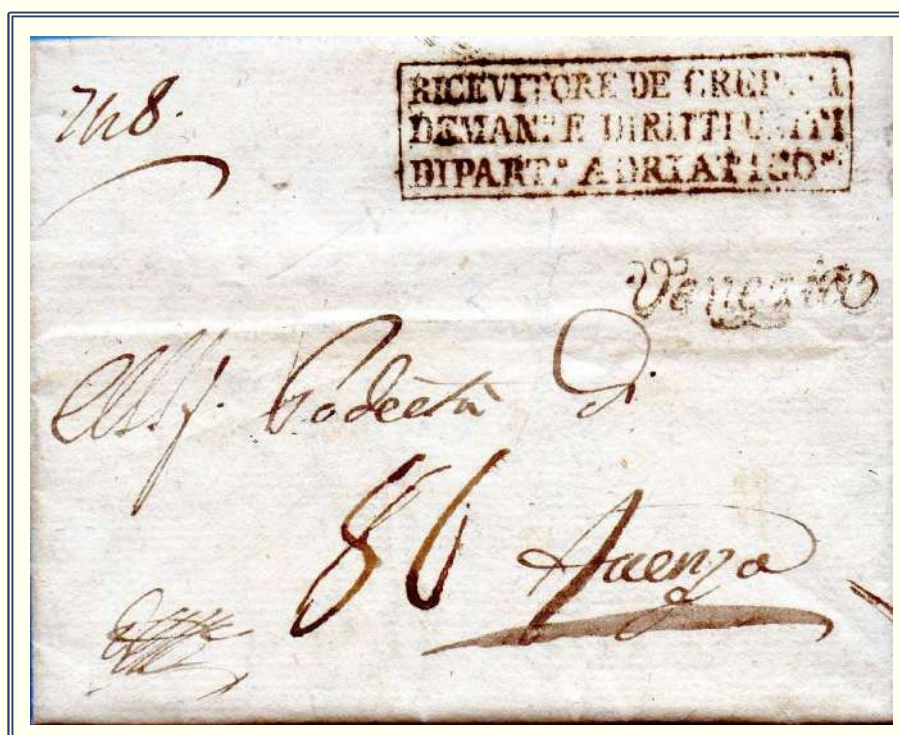 RICEVITORE DE
DEMAN. E DIRITTI UNITI
DIPART.º ADRIATICO
Venezia
Podestà Di
86 Faenza